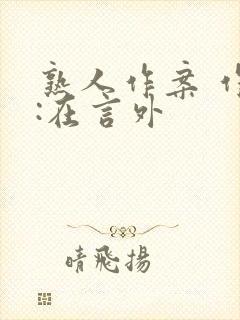 熟人作案
:在言外
晴飛揚